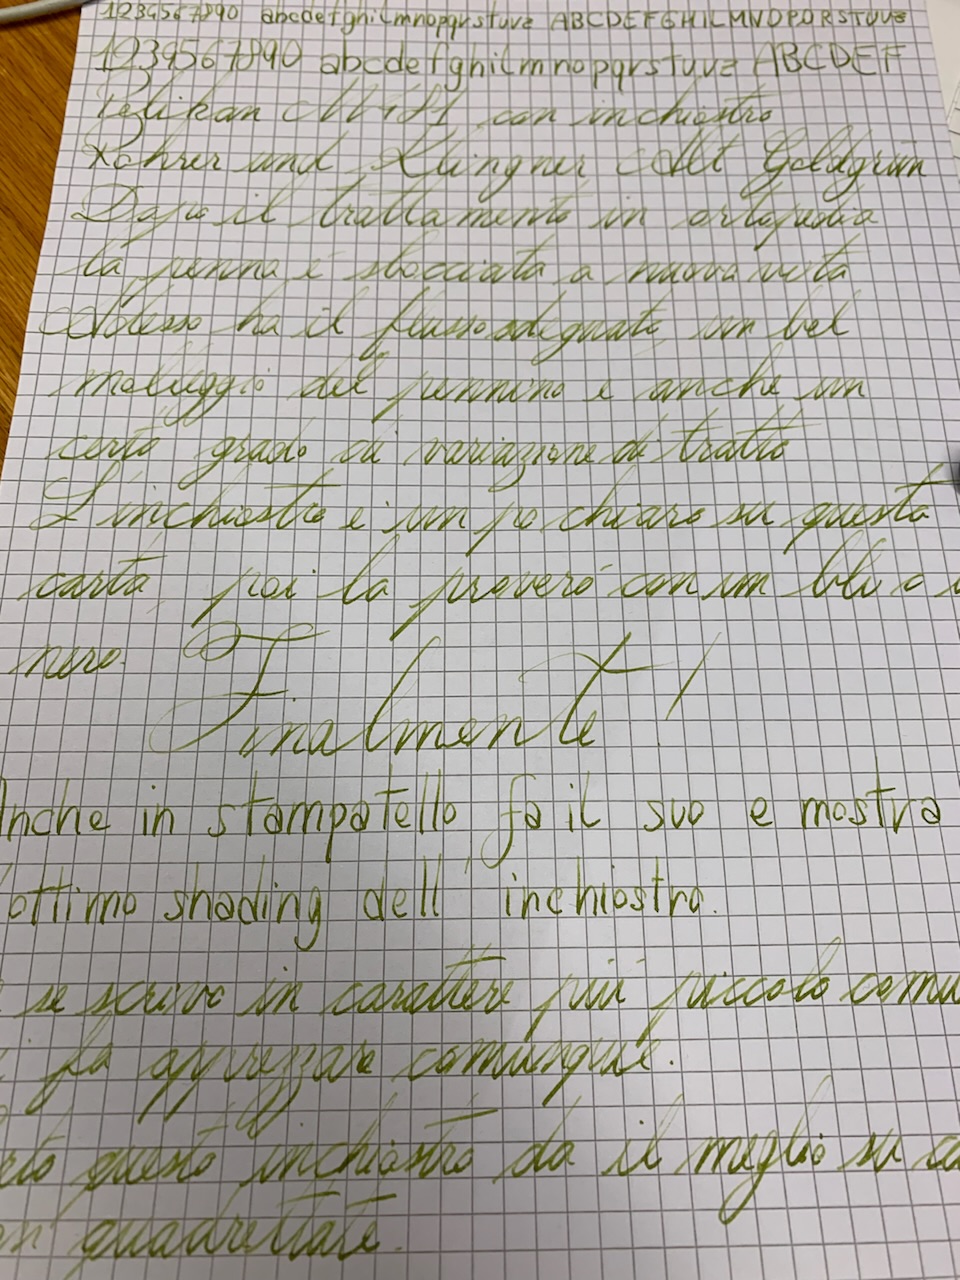 1234567890 abcdefghilmnopqrstuvz ABCDEFGHILMNOPQRSTUVZ
1234567890 abcdefghilmnopqrstuvz ABCDEF
Pelikan M481 con inchiostro
Rohrer und Klingner Alt Goldgrün
Dopo il trattamento in ortopedia
la penna è sbocciata a nuova vita
Adesso ha il flusso adeguato, un bel
molleggio del pennino e anche un
certo grado di variazione di tratto
L'inchiostro è un po chiaro su questa
carta, poi la proverò con un blu o
nero.
Finalmente!
Anche in stampatello fa il suo e mostra
ottimo shading dell'inchiostro.
se scrivo in carattere più piccolo
fa apprezzare comunque.
questo inchiostro da il meglio su
quadrettate.